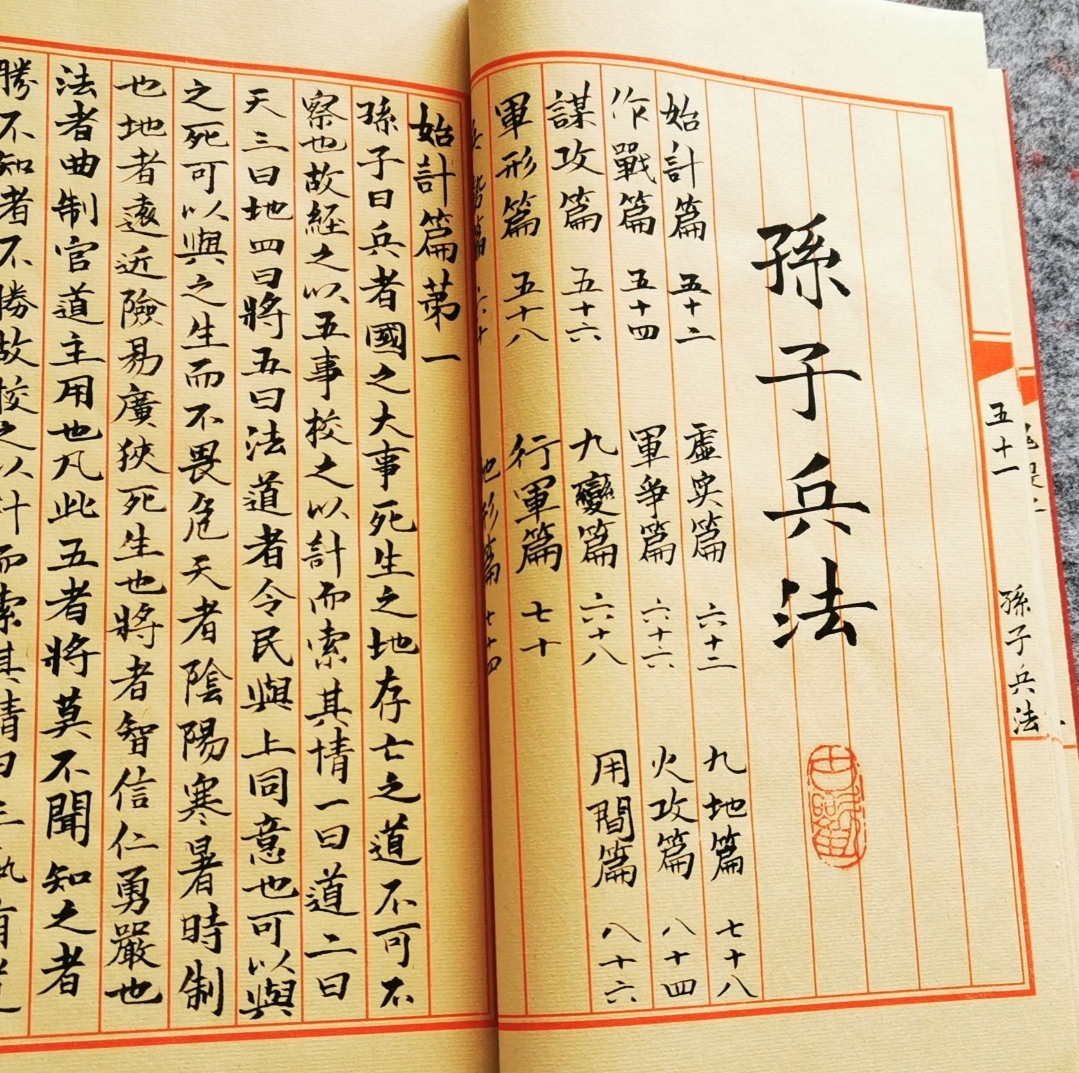 五十一 孫子兵法
孫子兵法
始計篇 五十二 虛实篇 六十二 九地篇 七十八
作戰篇 五十四 軍争篇 六十六 火攻篇 八十四
謀攻篇 五十六 九變篇 六十八 用間篇 八十六
軍形篇 五十八 行軍篇 七十
兵勢篇 六十 地形篇 七十四
始計篇第一
孫子曰兵者國之大事死生之地存亡之道不可不
察也故経之以五事校之以計而索其情一曰道二曰
天三曰地四曰將五曰法道者令民與上同意也可以與
之死可以與之生而不畏危天者陰陽寒暑時制
也地者遠近險易廣狹死生也將者智信仁勇嚴也
法者曲制官道主用也凡此五者將莫不聞知之者
勝不知者不勝故校之以計而索其情曰主孰有道